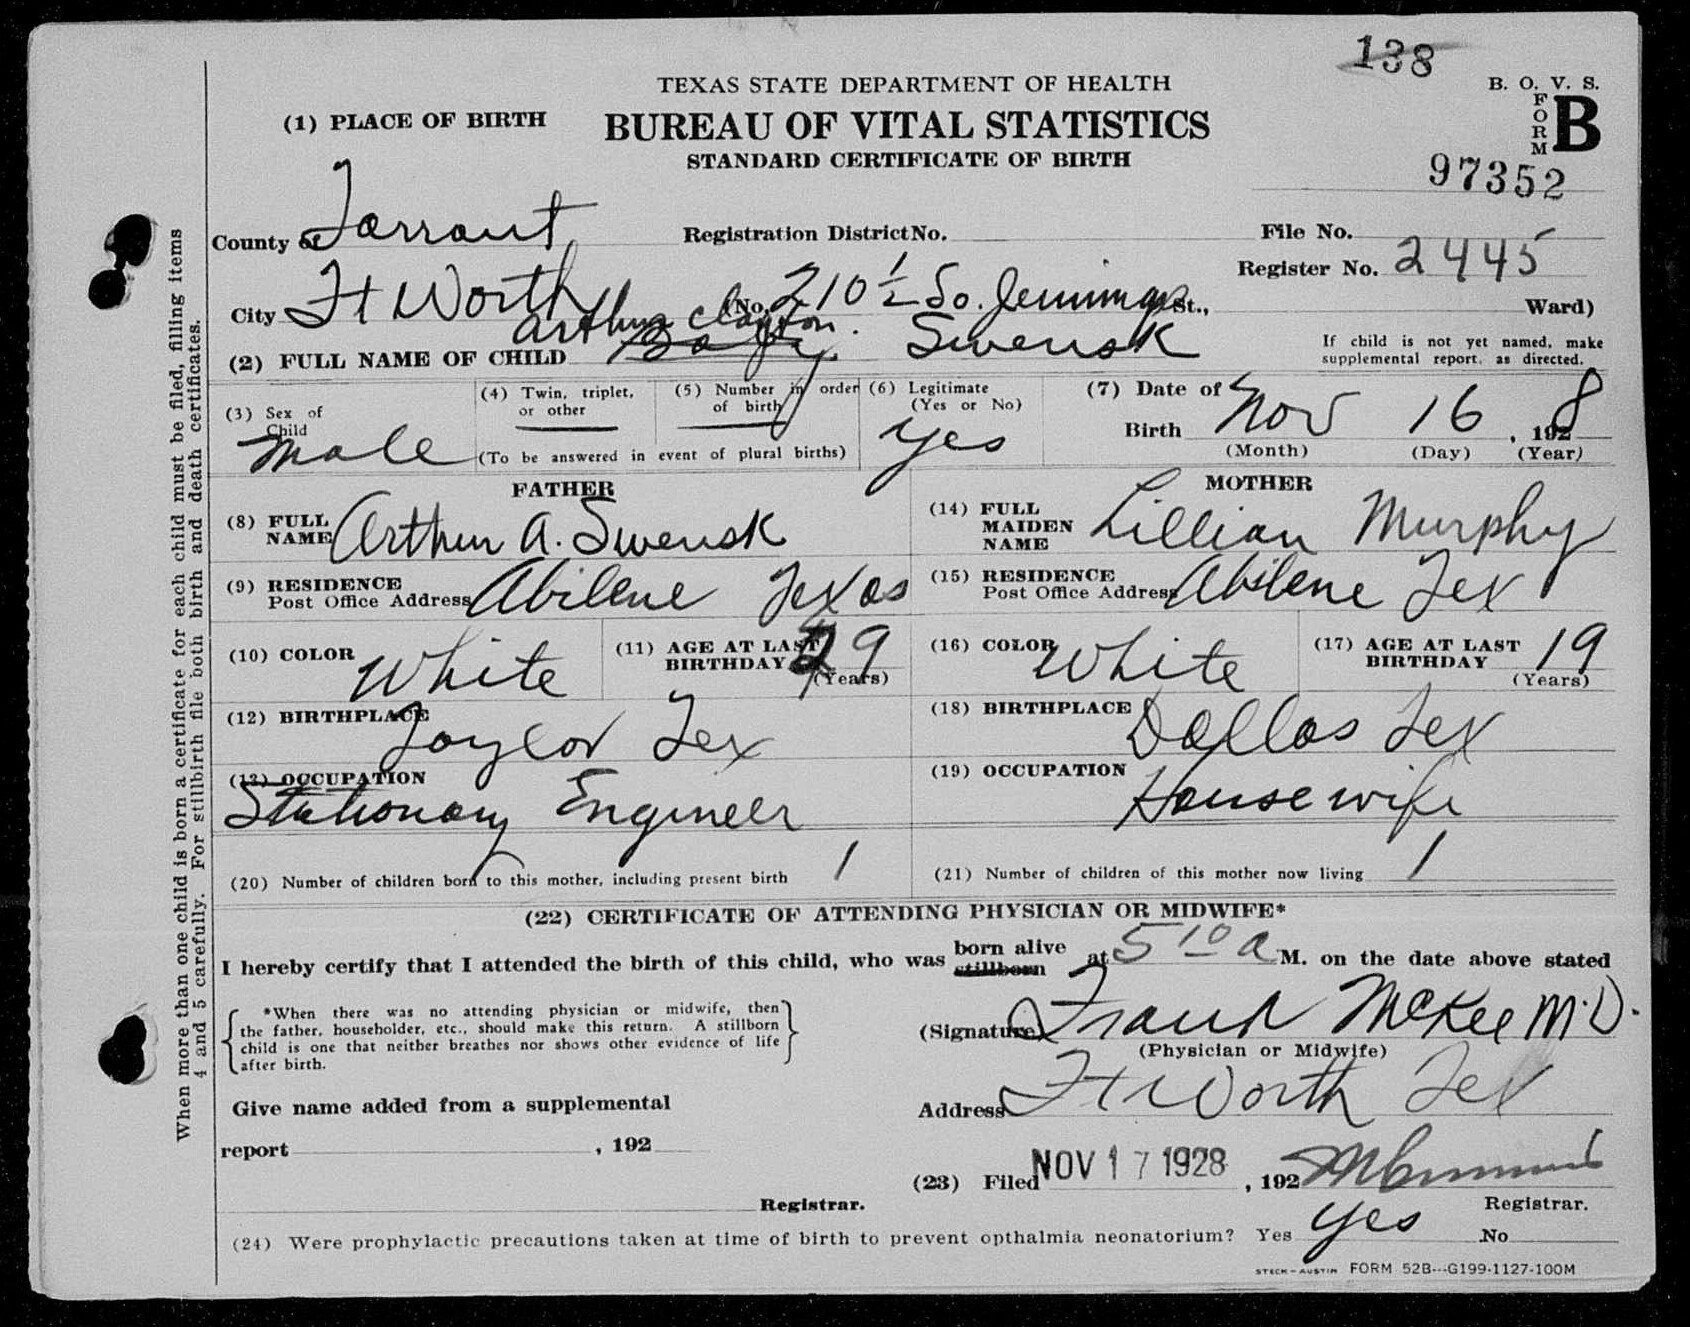 138
TEXAS STATE DEPARTMENT OF HEALTH
B. O. V. S.
(1) PLACE OF BIRTH
BUREAU OF VITAL STATISTICS
FORM B
STANDARD CERTIFICATE OF BIRTH
97352
County of Tarrant Registration District No. File No.
Register No. 2445
City Ft Worth (No. 210 1/2 So. Jennings St., Ward)
Arthur Clayton
(2) FULL NAME OF CHILD Baby Swensk
If child is not yet named, make
supplemental report, as directed.
(3) Sex of Child Male
(4) Twin, triplet, or other
(5) Number in order of birth
(To be answered in event of plural births)
(6) Legitimate (Yes or No) Yes
(7) Date of Birth Nov 16, 1928
(Month) (Day) (Year)
FATHER
(8) FULL NAME Arthur A. Swensk
(9) RESIDENCE Post Office Address Abilene Texas
(10) COLOR White
(11) AGE AT LAST BIRTHDAY 29 (Years)
(12) BIRTHPLACE Taylor Tex
(13) OCCUPATION
Stationary Engineer
MOTHER
(14) FULL MAIDEN NAME Lillian Murphy
(15) RESIDENCE Post Office Address Abilene Tex
(16) COLOR White
(17) AGE AT LAST BIRTHDAY 19 (Years)
(18) BIRTHPLACE Dallas Tex
(19) OCCUPATION
Housewife
(20) Number of children born to this mother, including present birth 1
(21) Number of children of this mother now living 1
(22) CERTIFICATE OF ATTENDING PHYSICIAN OR MIDWIFE*
I hereby certify that I attended the birth of this child, who was born alive stillborn at 5 10 a M. on the date above stated
*When there was no attending physician or midwife, then
the father, householder, etc., should make this return. A stillborn
child is one that neither breathes nor shows other evidence of life
after birth.
(Signature) Frank McKee M.D.
(Physician or Midwife)
Address Ft Worth Tex
Give name added from a supplemental
report , 192
Registrar.
(23) Filed NOV 17 1928, 192
Registrar.
(24) Were prophylactic precautions taken at time of birth to prevent opthalmia neonatorium? Yes Yes No
STECK-AUSTIN FORM 52B---G199-1127-100M
When more than one child is born a certificate for each child must be filed, filling items
4 and 5 carefully. For stillbirth file both birth and death certificates.